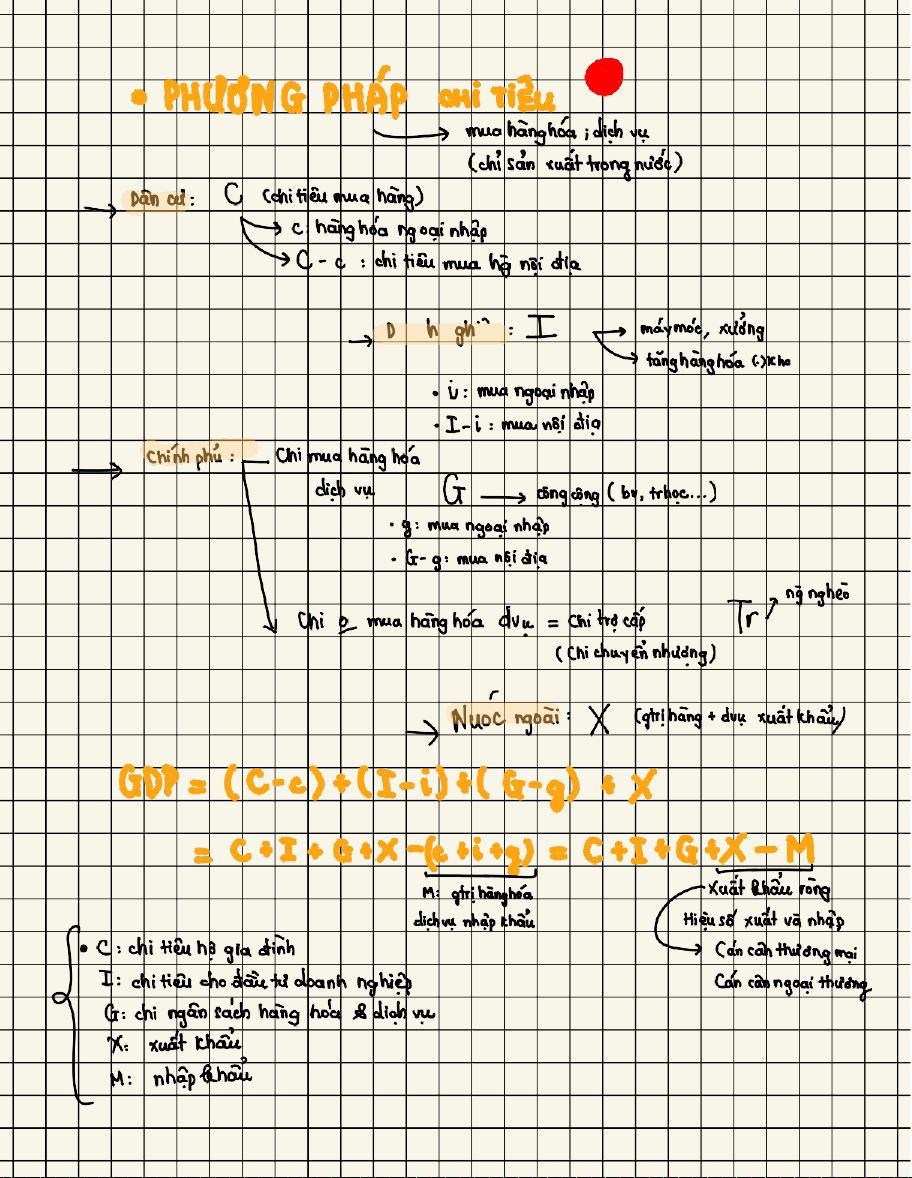 • PHƯƠNG PHÁP CHI TIÊU
mua hàng hóa ; dịch vụ
(chỉ sản xuất trong nước)
Dân cư: C (chi tiêu mua hàng)
c: hàng hóa ngoại nhập
C - c : chi tiêu mua hg nội địa
: I máy móc, xưởng
tăng hàng hóa (.) kho
• i : mua ngoại nhập
• I - i : mua nội địa
Chính phủ : Chi mua hàng hóa
dịch vụ G công cộng ( bv, trhọc...)
• g : mua ngoại nhập
• G - g : mua nội địa
Chi o mua hàng hóa dvụ = Chi trợ cấp Tr ng nghèo
( Chi chuyển nhượng)
Nước ngoài : X (gtrị hàng + dvụ xuất khẩu)
GDP = (C-c)+(I-i)+(G-g) + X
= C+I+G+X-(c+i+g) = C+I+G+X-M
M: gtrị hàng hóa
dịch vụ nhập khẩu
Xuất khẩu ròng
Hiệu số xuất và nhập
Cán cân thương mại
Cán cân ngoại thương
• C : chi tiêu hộ gia đình
I : chi tiêu cho đầu tư doanh nghiệp
G: chi ngân sách hàng hóa & dịch vụ
X: xuất khẩu
M: nhập khẩu